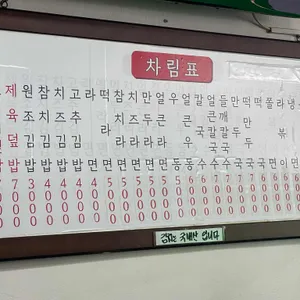 차림표
제육덮밥 7000
원조김밥 3000
참치김밥 4000
치즈김밥 4000
고추김밥 4000
라면 4000
떡라면 5000
참치라면 5000
치즈라면 5000
만두라면 5000
얼큰라면 5000
우동
얼큰우동
칼국수
얼큰칼국수
들깨칼국수
만두국
떡국
떡만두국
쫄면
라볶이